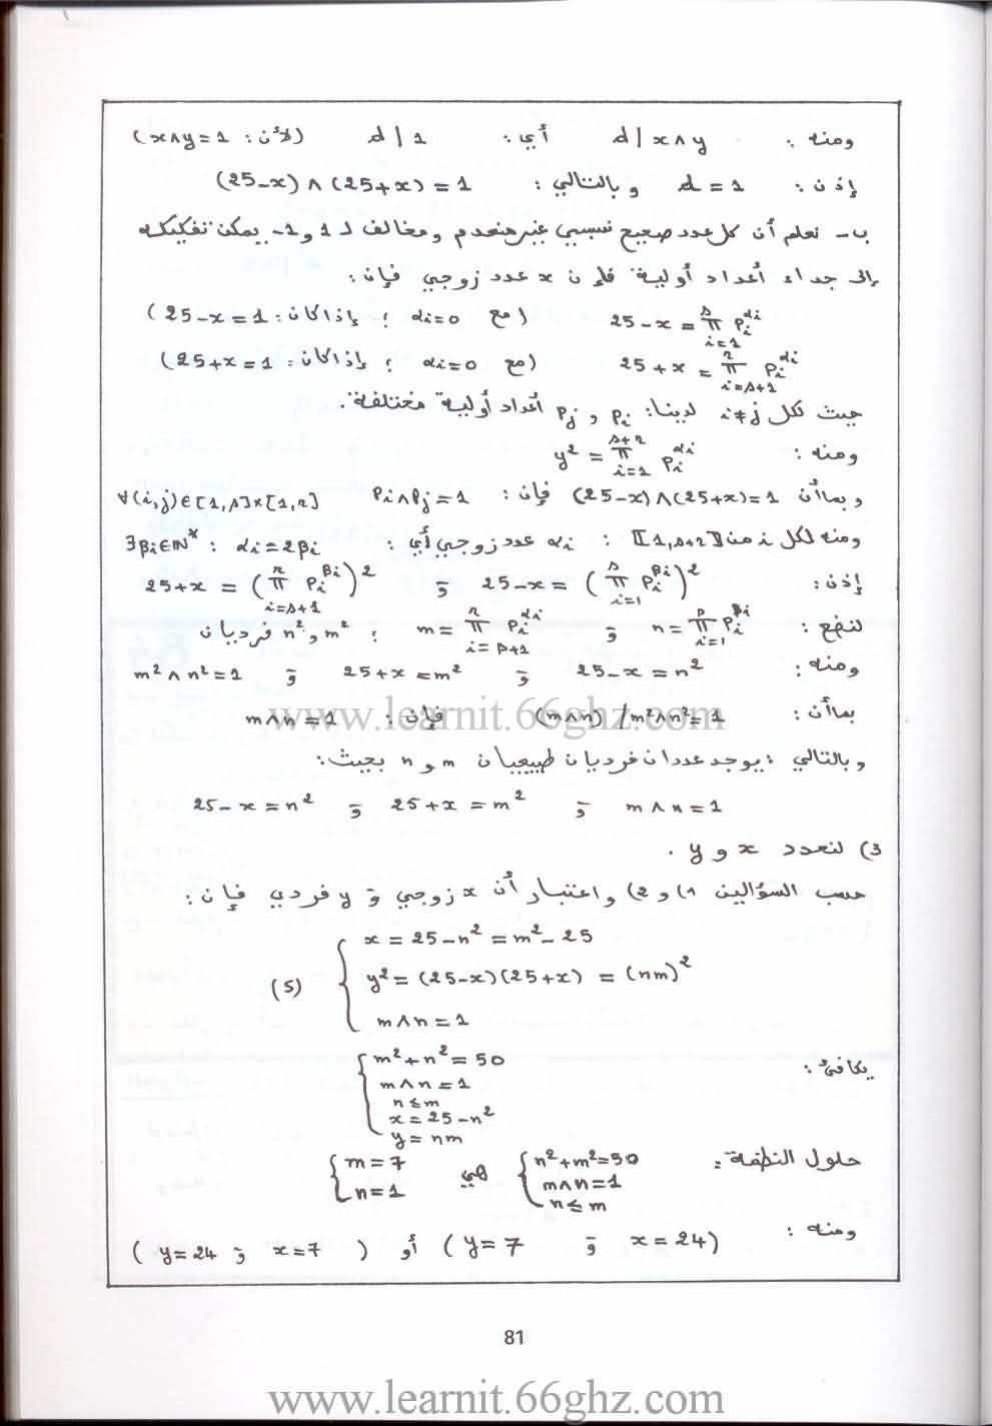 ومنه : d | x∧y أي : d | 1 (لأن : x∧y = 1)
إذن : d = 1 وبالتالي : (25-x) ∧ (25+x) = 1
ب- نعلم أن كل عدد صحيح نسبي غير منعدم ومخالف لـ 1 و 1- يمكن تفكيكه
إلى جداء أعداد أولية فإن x عدد زوجي فإن :
25-x = ∏_{i=1}^{s} p_i^{αi} (مع αi=0 ؛ إذا كان : 25-x=1)
25+x = ∏_{i=s+1}^{r} p_i^{αi} (مع αi=0 ؛ إذا كان : 25+x=1)
حيث لكل i≠j لدينا : p_i و p_j أعداد أولية مختلفة .
ومنه : y² = ∏_{i=1}^{s+r} p_i^{αi}
وبما أن (25-x)∧(25+x)=1 فإن : p_i∧p_j=1 ∀(i,j)∈[1,s]×[1,r]
ومنه لكل i من ⟦1,s+r⟧ : αi عدد زوجي أي : ∃βi∈ℕ* : αi=2βi
إذن : 25-x = (∏_{i=1}^{s} p_i^{βi})² و 25+x = (∏_{i=s+1}^{r} p_i^{βi})²
لنضع : n = ∏_{i=1}^{p} p_i^{βi} و m = ∏_{i=p+1}^{r} p_i^{αi} ؛ m² و n² فرديان
ومنه : 25-x = n² و 25+x = m² و m²∧n²=1
بما أن : (m∧n) / m²∧n²=1 فإن : m∧n=1
وبالتالي : يوجد عددان فرديان طبيعيان m و n بحيث :
m∧n=1 و 25+x = m² و 25-x = n²
3) لنحدد x و y .
حسب السؤالين 1) و 2) واعتبار أن x زوجي و y فردي فإن :
x = 25-n² = m²-25
(S) y² = (25-x)(25+x) = (nm)²
m∧n=1
يكافئ : m²+n²=50
m∧n=1
n≤m
x=25-n²
y=nm
حلول النظمة : n²+m²=50 هي m=7
m∧n=1 n=1
n≤m
ومنه : (x=24 و y=7) أو (x=7 و y=24)
81
www.learnit.66ghz.com
www.learnit.66ghz.com